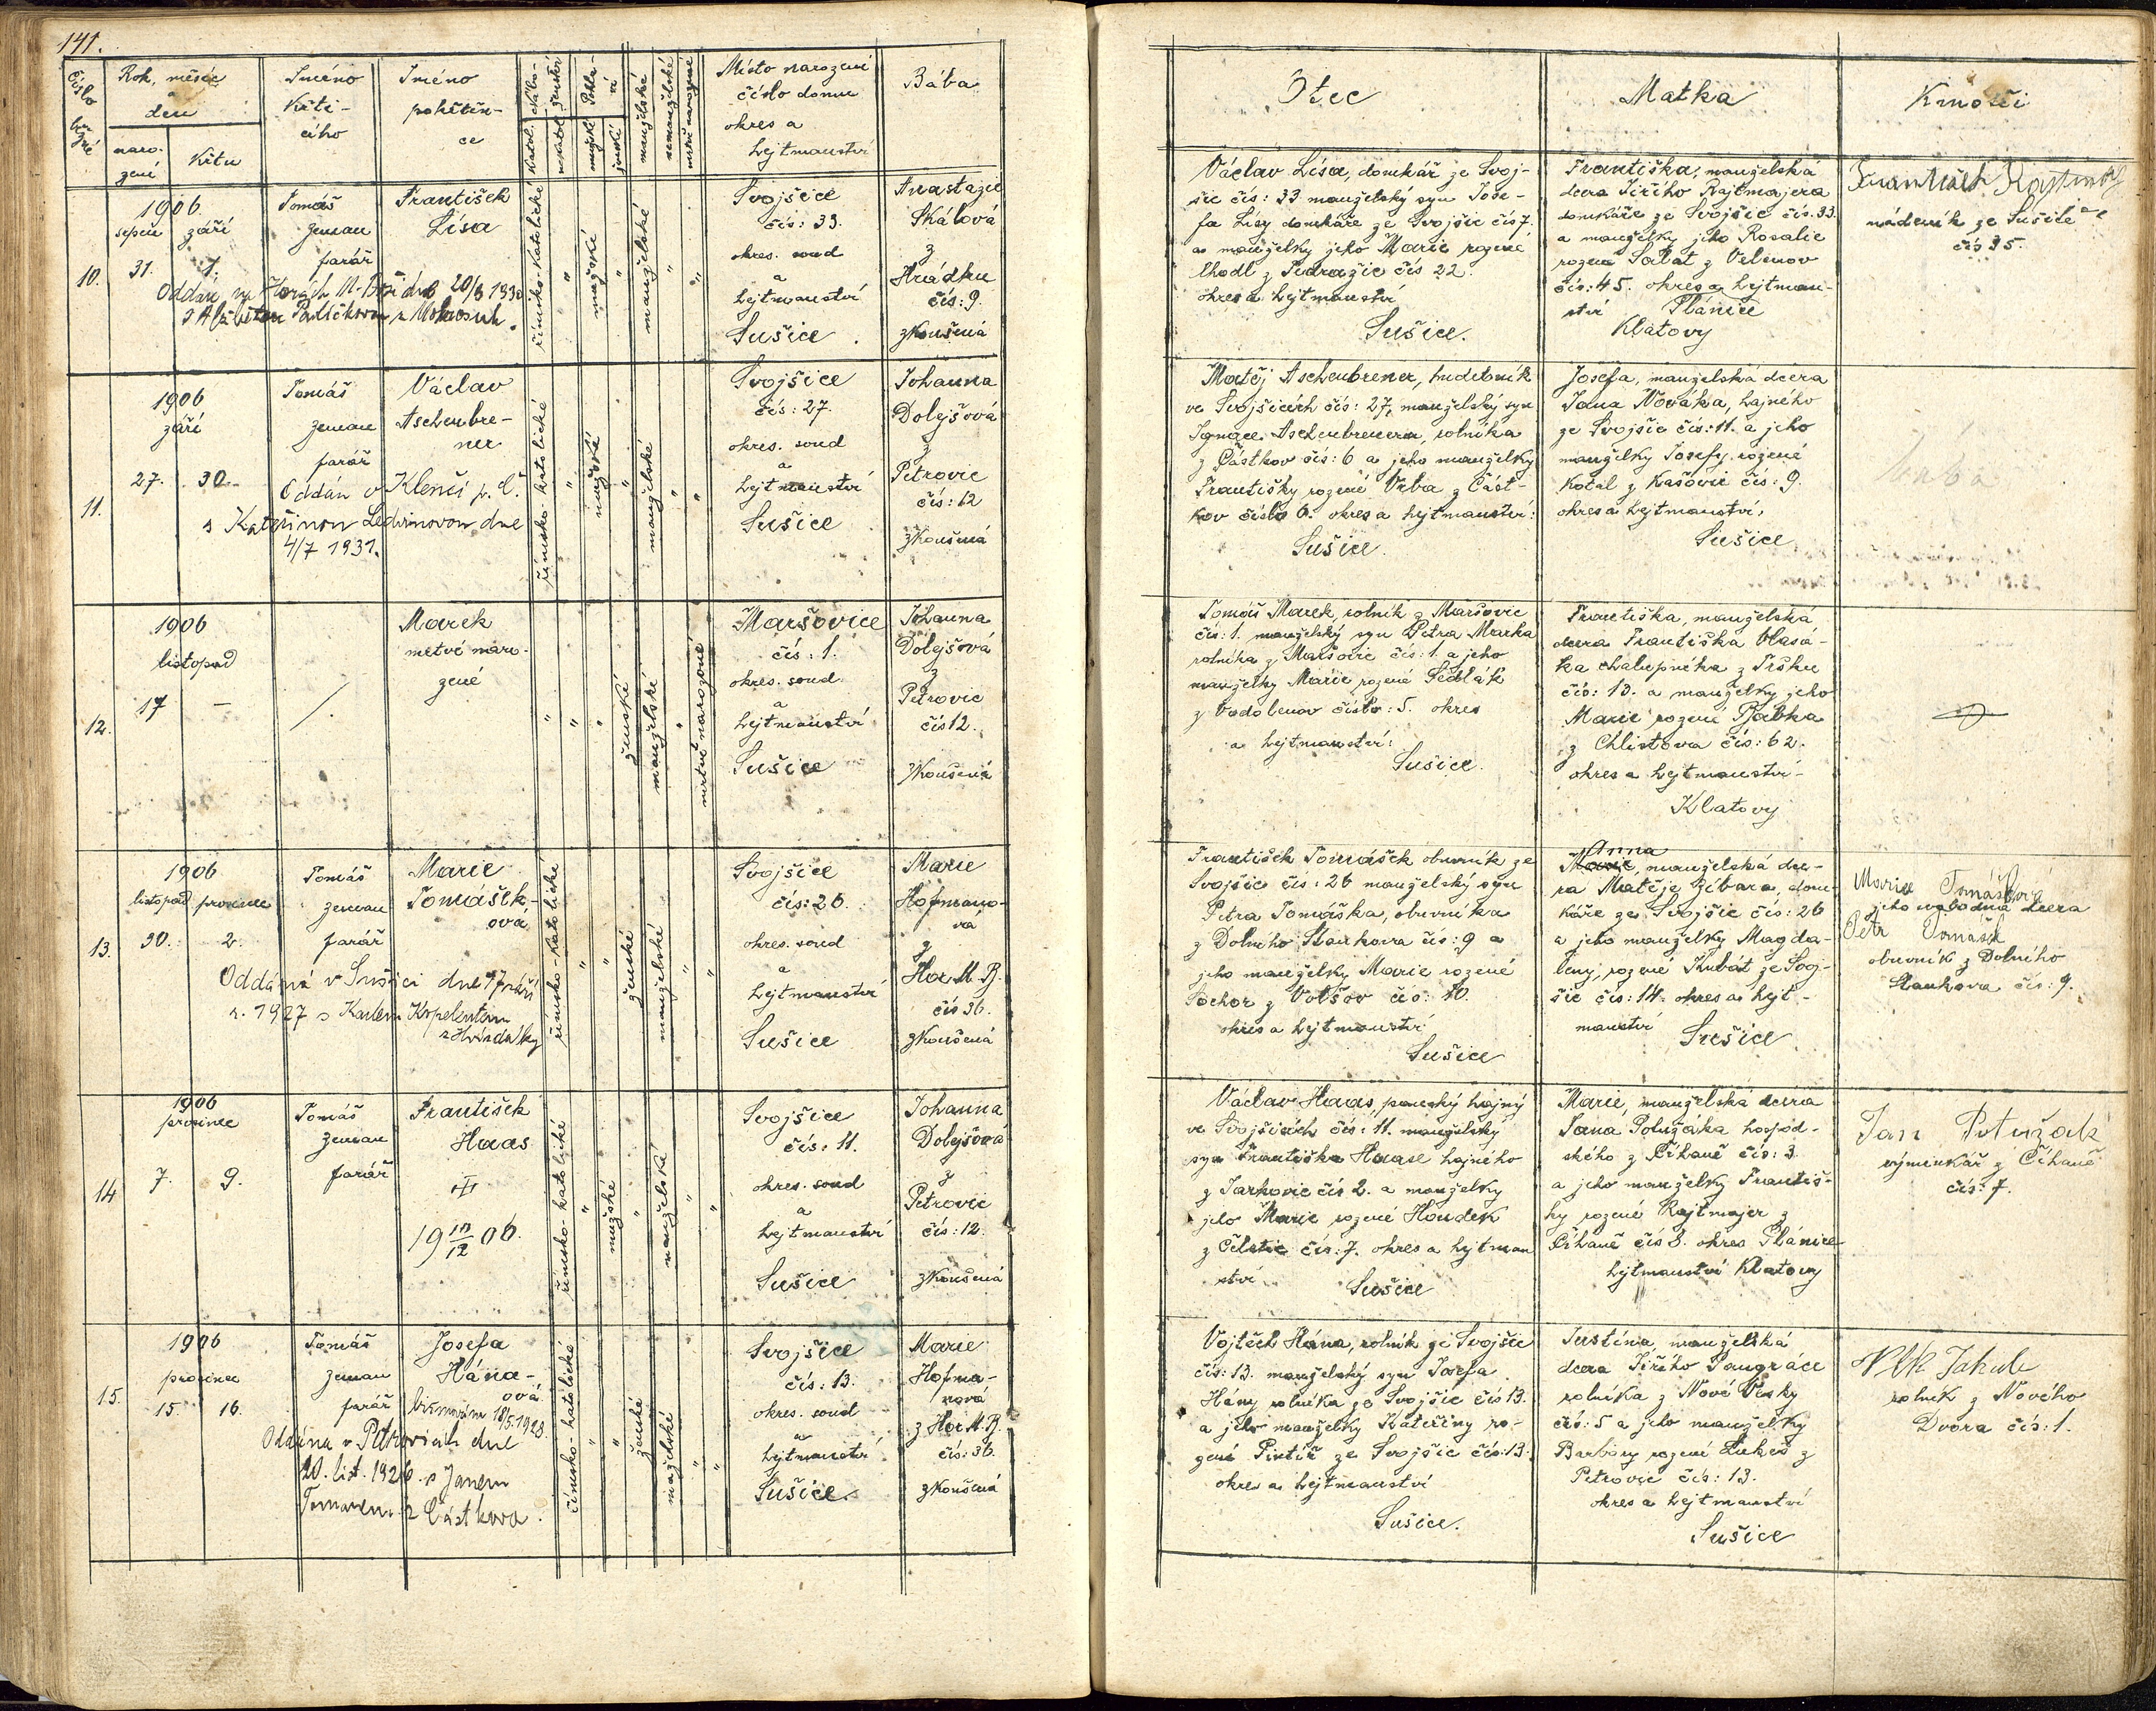 141.
Číslo běžné
Rok, měsíc
a
den
naro-
zení
křtu
Jméno
křti-
cího
Jméno
pokřtěn-
ce
Nábo-
ženství
katol.
nekatol.
Pohla-
ví
mužské
ženské
manželské
nemanželské
mrtvě narozené
Místo narození
číslo domu
okres a
hejtmanství
Bába
Otec
Matka
Kmotři
10.
1906
srpen září
31. 1.
Tomáš
Zeman
farář
František
Lísa
Oddán na Horách M. Boží dne 20/8 1930
s Alžbětou
římsko-katolické
"
mužské
"
manželské
"
"
Svojšice
čís: 33.
okres. soud
a
hejtmanství
Sušice.
Anastazie
Skálová
z
Hrádku
čís: 9.
zkoušená
Václav Lísa, domkář ze Svoj-
šic čís: 33. manželský syn Jose-
fa Lísy domkáře ze Svojšic čís 7.
a manželky jeho Marie rozené
Lhodl z Petražic čís 22.
okres a hejtmanství
Sušice.
Františka, manželská
dcera Jiřího Rajtmajera
domkáře ze Svojšic čís. 33.
a manželky jeho Rosalie
rozené Salát z Vrlenov
čís: 45. okres a hejtman-
ství Plánice
Klatovy
František
nádeník ze Sušice
čís 35.
11.
1906
září
27. 30.
Tomáš
Zeman
farář
Václav
Aschenbre-
ner
Oddán v Klenčí p. Č.
s Kateřinou Ledvinovou dne
4/7 1931.
římsko-katolické
"
mužské
"
manželské
"
"
Svojšice
čís: 27.
okres. soud
a
hejtmanství
Sušice
Johanna
Dolejšová
z
Petrovic
čís: 12
zkoušená
Matěj Aschenbrener, hudebník
ve Svojšicích čís: 27, manželský syn
Ignace Aschenbrenera, rolníka
z Částkov čís: 6 a jeho manželky
Františky rozené Vrba z Část-
kov číslo 6. okres a hejtmanství:
Sušice.
Josefa, manželská dcera
Jana Nováka, hajného
ze Svojšic čís: 11. a jeho
manželky Josefy rozené
Kotál z Kašovic čís: 9.
okres a hejtmanství,
Sušice
12.
1906
listopad
17 –
/.
Marek
mrtvě naro-
zené
"
"
"
ženské
manželské
"
mrtvě narozené
Maršovice
čís: 1.
okres. soud
a
hejtmanství
Sušice
Johanna
Dolejšová
z
Petrovic
čís 12.
zkoušená
Tomáš Marek, rolník z Maršovic
čís: 1. manželský syn Petra Marka
rolníka z Maršovic čís: 1. a jeho
manželky Marie rozené Sedlák
z Vodolenov číslo: 5. okres
a hejtmanství:
Sušice.
Františka, manželská
dcera Františka Vlasá-
ka chalupníka z Tržku
čís: 13. a manželky jeho
Marie rozené Babka
z Chlistova čís: 62.
okres a hejtmanství-
Klatovy
13.
1906
listopad prosinec
30. 2.
Tomáš
Zeman
farář
Marie
Tomášek-
ová
Oddána v Sušici dne 17 září
r. 1927 s Karlem Kopelentem
římsko-katolické
"
"
ženské
manželské
"
"
Svojšice
čís: 26.
okres. soud
a
hejtmanství
Sušice
Marie
Hofmano-
vá
z
Hor M. B.
čís 36.
zkoušená
František Tomášek obuvník ze
Svojšic čís: 26 manželský syn
Petra Tomáška, obuvníka
z Dolního Staňkova čís: 9 a
jeho manželky Marie rozené
Tochor z Volšov čís: 10.
okres a hejtmanství
Sušice
Anna
Marie, manželská dce-
ra Matěje Zíbara, dom-
káře ze Svojšic čís: 26
a jeho manželky Magda-
leny, rozené Kubát ze Svoj-
šic čís: 14. okres a hejt-
manství Sušice
Marie Tomáškova
jeho svobodná dcera
Petr Tomášek
obuvník z Dolního
Staňkova čís: 9.
14
1906
prosinec
7. 9.
Tomáš
Zeman
farář
František
Haas
19 10/12 06.
římsko-katolické
"
mužské
"
manželské
"
"
Svojšice
čís: 11.
okres. soud
a
hejtmanství
Sušice
Johanna
Dolejšová
z
Petrovic
čís: 12.
zkoušená
Václav Haas, panský hajný
ve Svojšicích čís: 11. manželský
syn Františka Haase hajného
z Jarkovic čís 2. a manželky
jeho Marie rozené Houdek
z Čeletic čís: 7. okres a hejtman
ství Sušice
Marie, manželská dcera
Jana Potužáka hospod-
ského z Číhaně čís: 3.
a jeho manželky Františ-
ky rozené Rajtmajer z
Číhaně čís 8. okres Plánice
hejtmanství Klatovy
Jan Potužák
výminkář z Číhaně
čís: 7.
15.
1906
prosinec
15. 16.
Tomáš
Zeman
farář
Josefa
Hána-
ová
biřmován 18/5. 1928.
Oddána v Petrovicích dne
20. list. 1926. s Janem
Tomanem z Částkova.
římsko-katolické
"
"
ženské
manželské
"
"
Svojšice
čís: 13.
okres. soud
a
hejtmanství
Sušice.
Marie
Hofma-
nová
z Hor M. B.
čís: 36.
zkoušená
Vojtěch Hána, rolník ze Svojšic
čís: 13. manželský syn Josefa
Hány rolníka ze Svojšic čís 13.
a jeho manželky Kateřiny ro-
zené Pintíř ze Svojšic čís: 13.
okres a hejtmanství
Sušice.
Justina, manželská
dcera Jiřího Pangráce
rolníka z Nové Vísky
čís: 5 a jeho manželky
Barbory rozené Lukeš z
Petrovic čís: 13.
okres a hejtmanství
Sušice
Vlk Jakub
rolník z Nového
Dvora čís: 1.